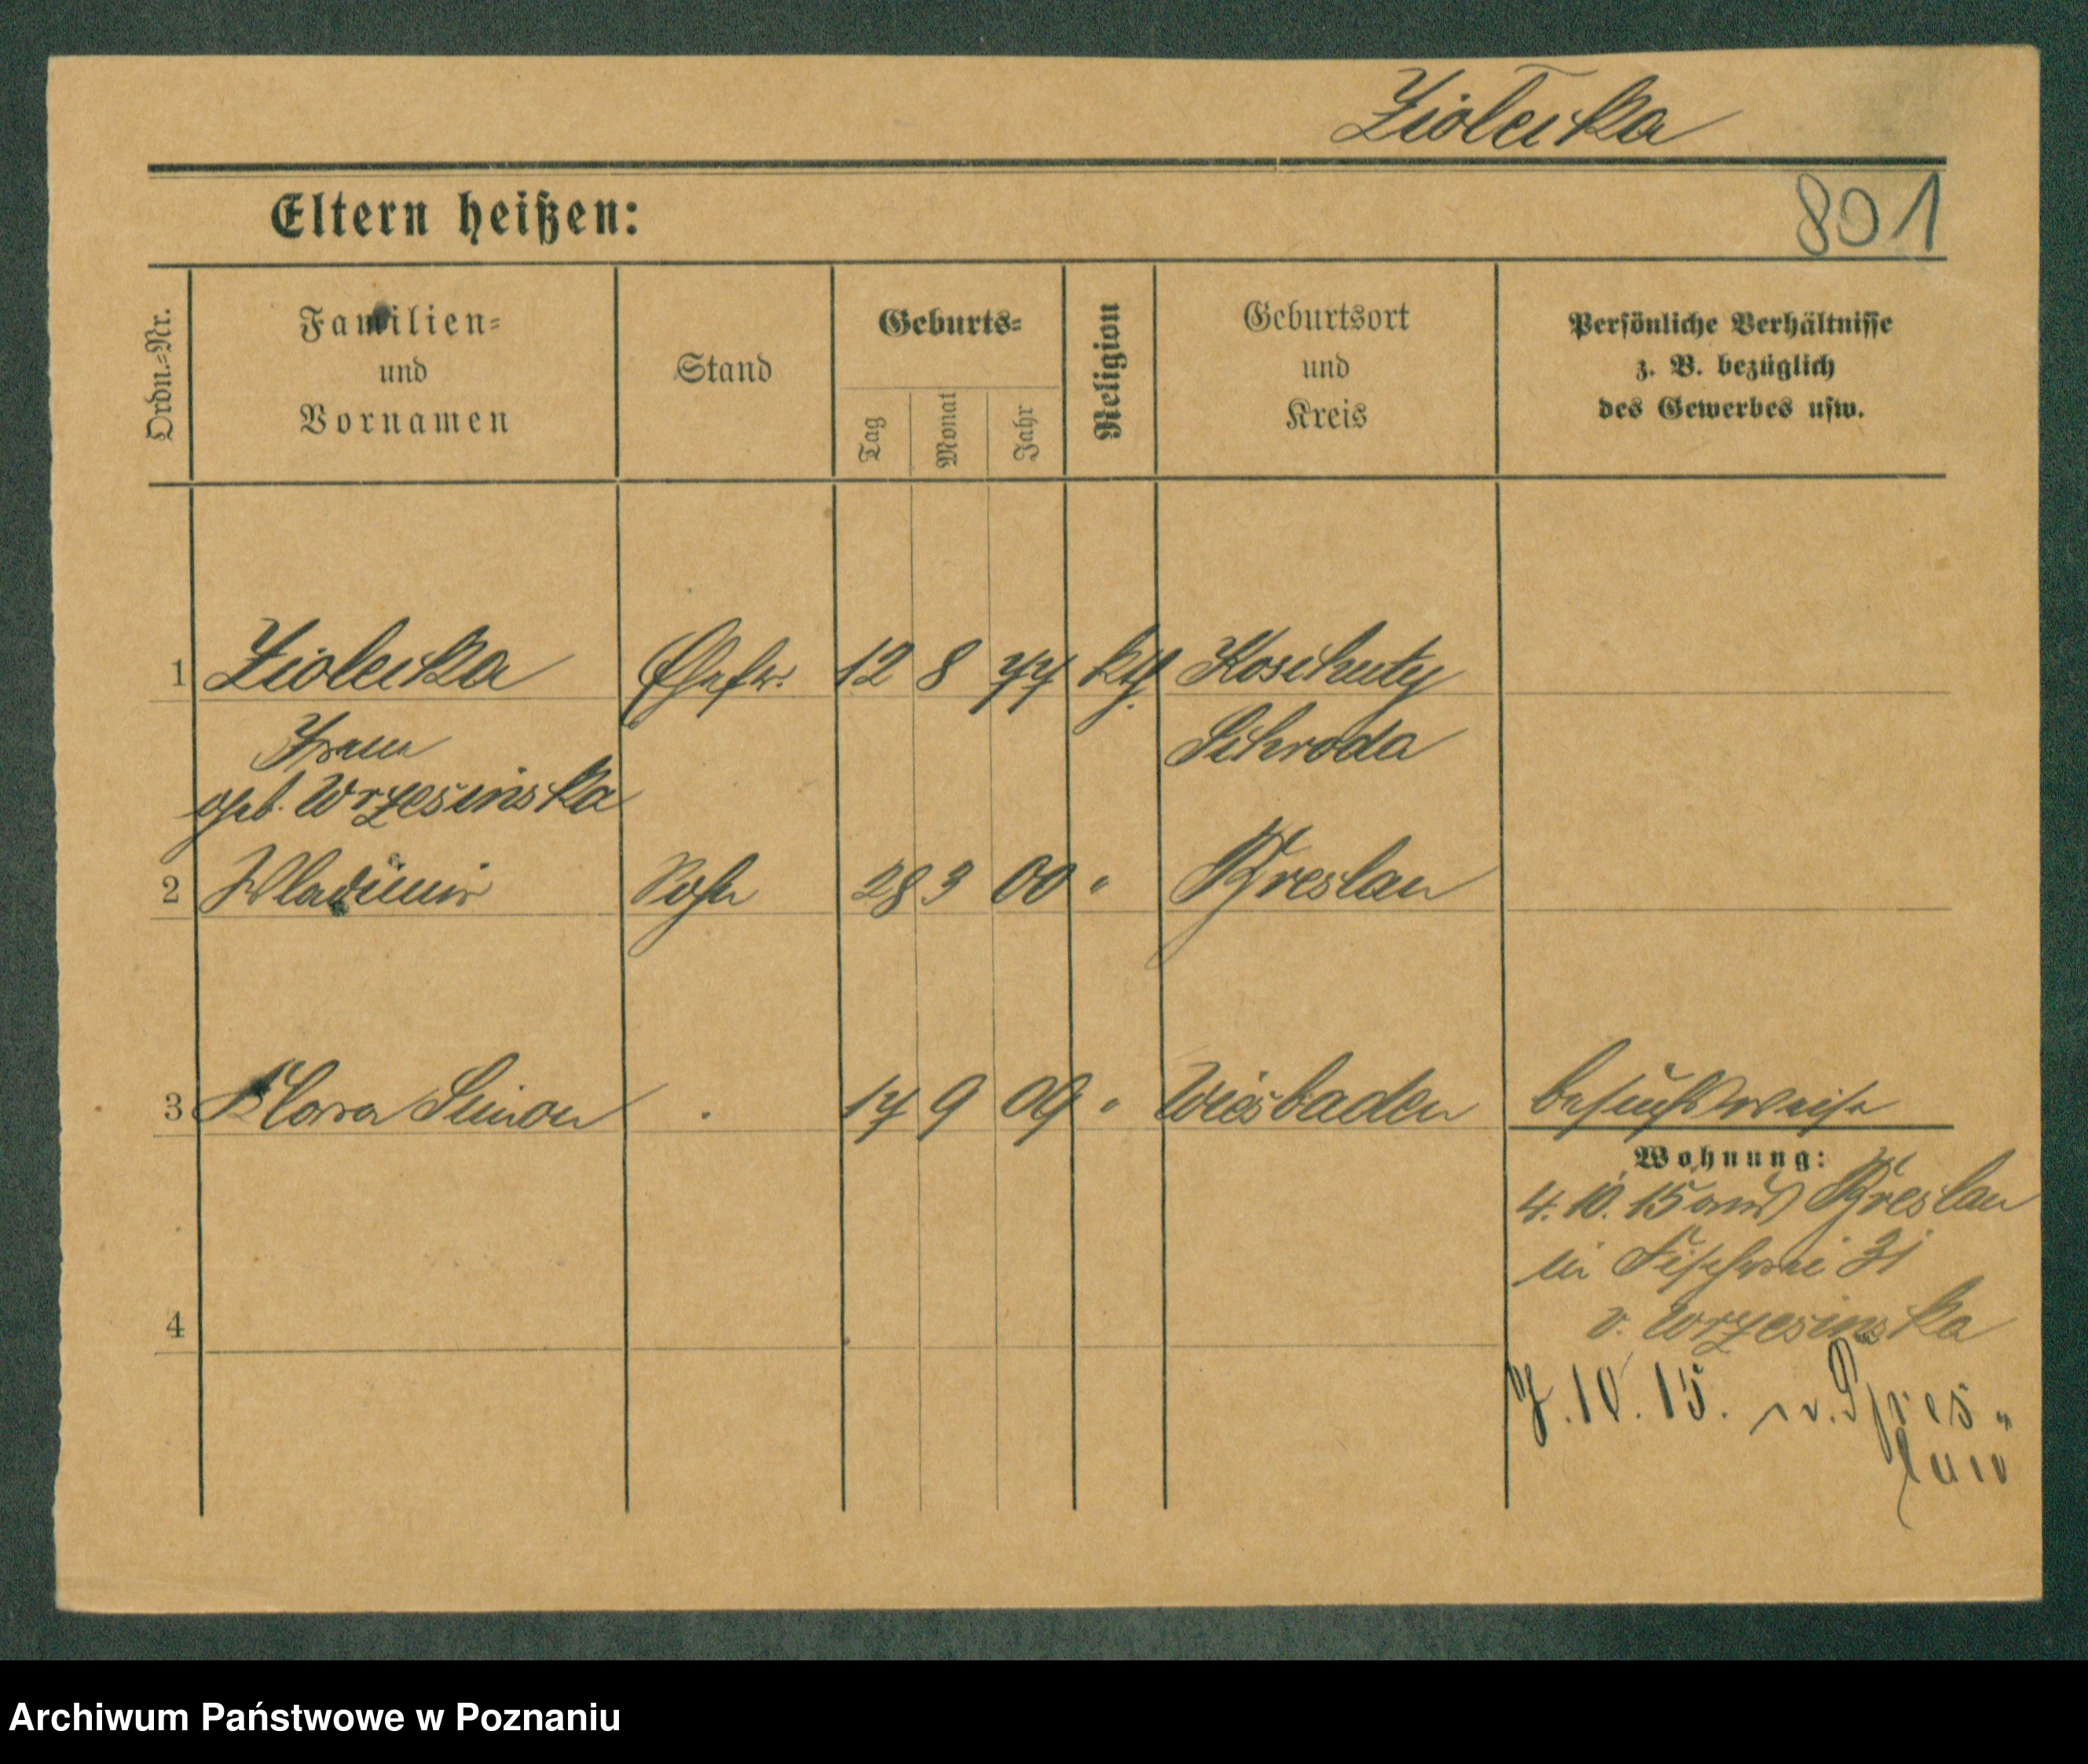 Ziolecka
Eltern heißen:
801
Ordn.=Nr.
Familien=
und
Vornamen
Stand
Geburts=
Tag
Monat
Jahr
Religion
Geburtsort
und
Kreis
Persönliche Verhältnisse
z. B. bezüglich
des Gewerbes usw.
1 Ziolecka Ehefr. 12 8 77 kth. Koschuty
Schroda
geb. Wrzesinska
2 Wladimir Sohn 28 3 00 " Breslau
3 Simon 17 9 09 " Wiesbaden besuchsweise
Wohnung:
4. 10. 15 aus Breslau
in Fischerei 31
b. Wrzesinska
4
7. 10. 15. n. Bres=
lau
Archiwum Państwowe w Poznaniu